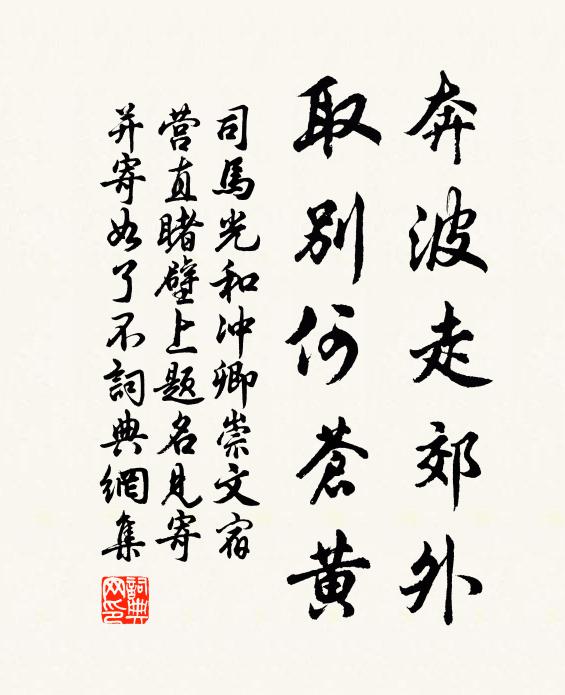 奔波走郊外
取別何蒼黃
司馬光和冲卿崇文宿
营直睹壁上题名見寄
并寄如了不詞典網集
詞典网印